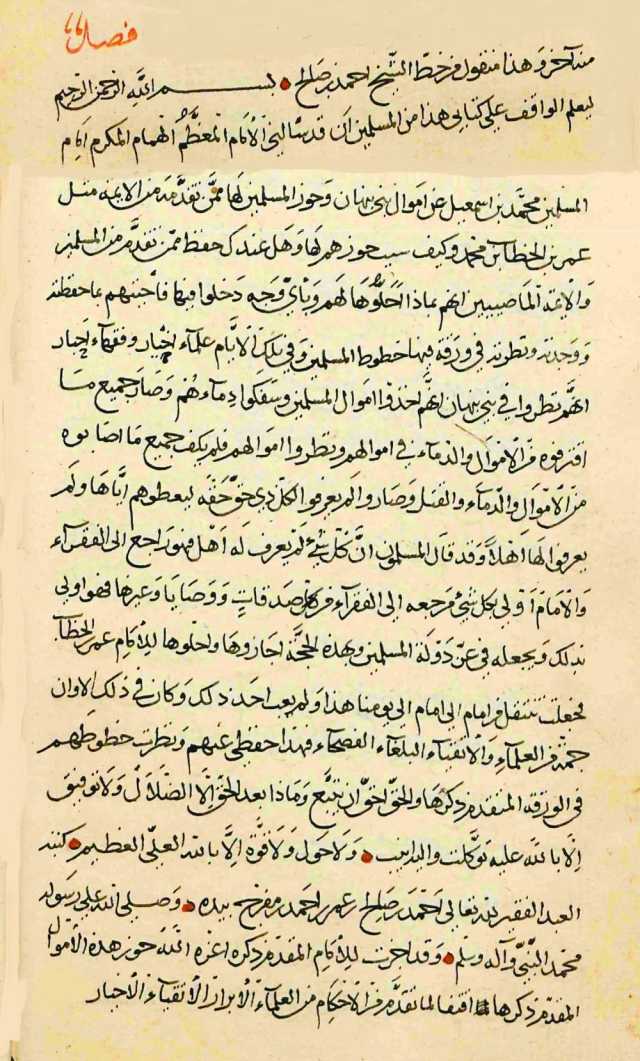 فصل
منه آخر وهذا منقول من خط الشيخ احمد بن صالح بسم الله الرحمن الرحيم
ليعلم الواقف علي كتابي هذا من المسلمين ان قد سألني الامام المعظم الهمام المكرم امام
المسلمين محمد بن اسمعيل عن اموال بني نبهان وحوز المسلمين لها ممن تقدم من الايمة مثل
عمر بن الخطاب بن محمد وكيف سبب حوزهم لها وهل عندك حفظ ممن تقدم من المسلمين
والايمة الماضيين انهم بماذا احلوها لهم وباي وجه دخلوا فيها فاجبتهم بما حفظته
ووجدته ونظرته في ورقة فيها خطوط المسلمين وفي تلك الايام علماء اخيار وفقهاء احبار
انهم نظروا في بني نبهان انهم اخذوا اموال المسلمين وسفكوا دماءهم وصار جميع ما
اقترفوه من الاموال والدماء في اموالهم ونظروا اموالهم فلم يكف جميع ما اصابوه
من الاموال والدماء والقتل وصاروا لم يعرفوا لكل ذي حق حقه ليعطوهم اياها ولم
يعرفوا لها اهلا وقد قال المسلمون ان كل شئ لم يعرف له اهل فهو راجع الى الفقراء
والامام اولي بكل شئ مرجعه الى الفقراء من كل صدقات ووصايا وغيرها فهو اولي
بذلك ويجعله في عز دولة المسلمين وبهذه الحجة اجازوها واحلوها للامام عمر بن الخطاب
فجعلت تنتقل من امام الى امام الى يومنا هذا ولم يعب احد ذلك وكان في ذلك الاوان
جمة من العلماء والاتقياء البلغاء الفصحاء فهذا حفظي عنهم ونظرت خطوطهم
في الورقة المتقدم ذكرها والحق احق ان يتبع وماذا بعد الحق الا الضلال ولا توفيق
الا بالله عليه توكلت واليه انيب ولا حول ولا قوة الا بالله العلي العظيم كتبه
العبد الفقير لله تعالى احمد بن صالح بن عمر بن احمد بن مفرج بيده وصلى الله على رسوله
محمد النبي وآله وسلم وقد اجزت للامام المقدم ذكره اعزه الله حوز هذه الاموال
المقدم ذكرها اقتفا لما تقدم من الاحكام من العلماء الابرار الاتقياء الاخيار